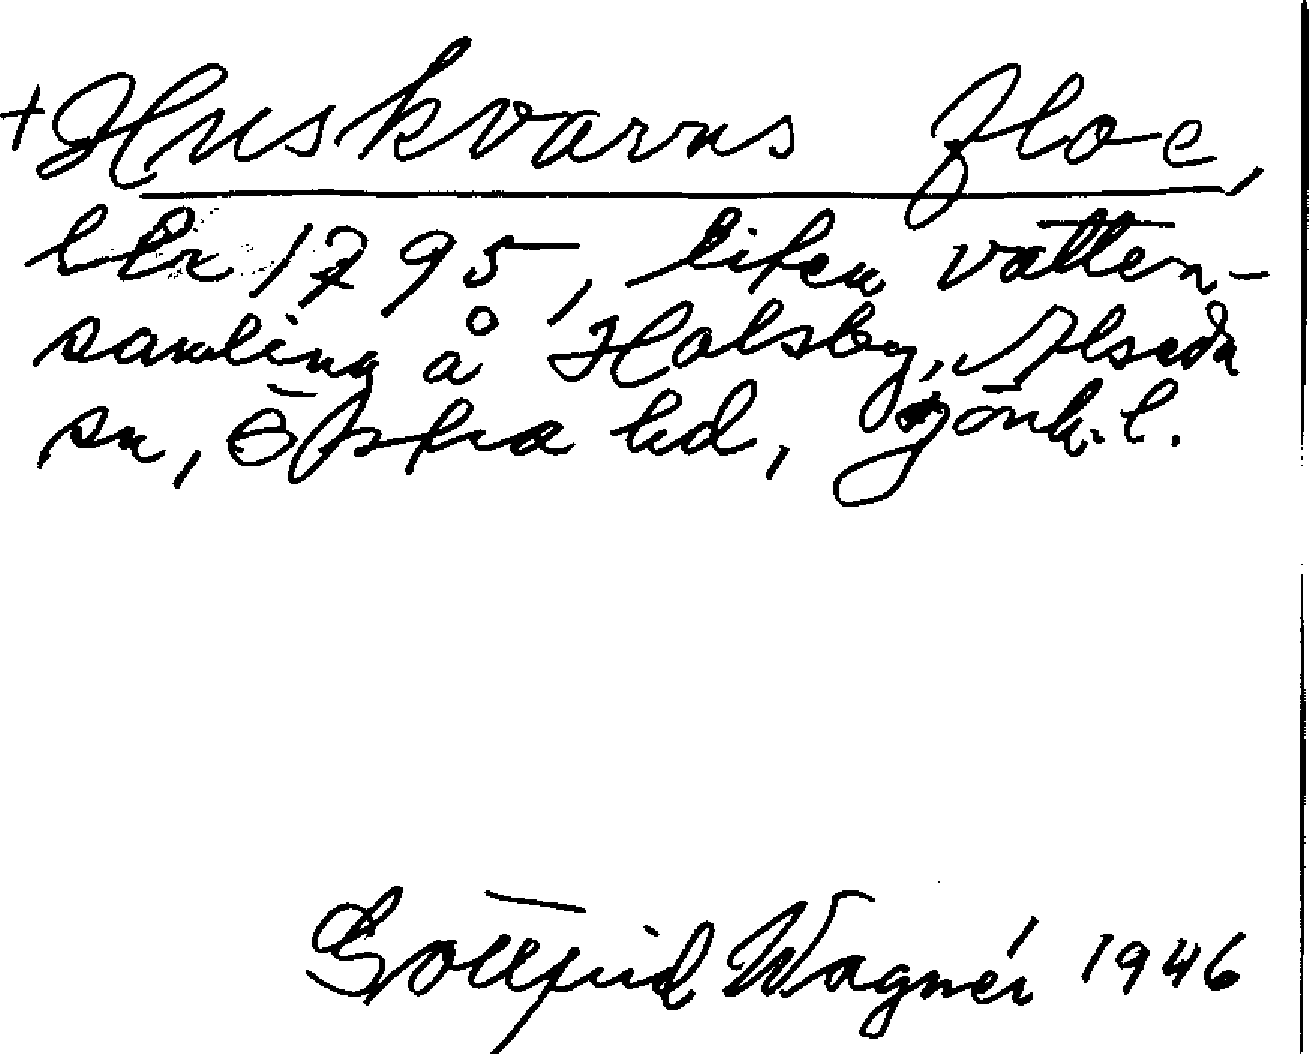 + Huskvarns floe,
lLr 1795, liten vatten-
samling å Holsby, Alseda
sn, Östra hd, Jönk. l.
Gottfrid Wagnér 1946